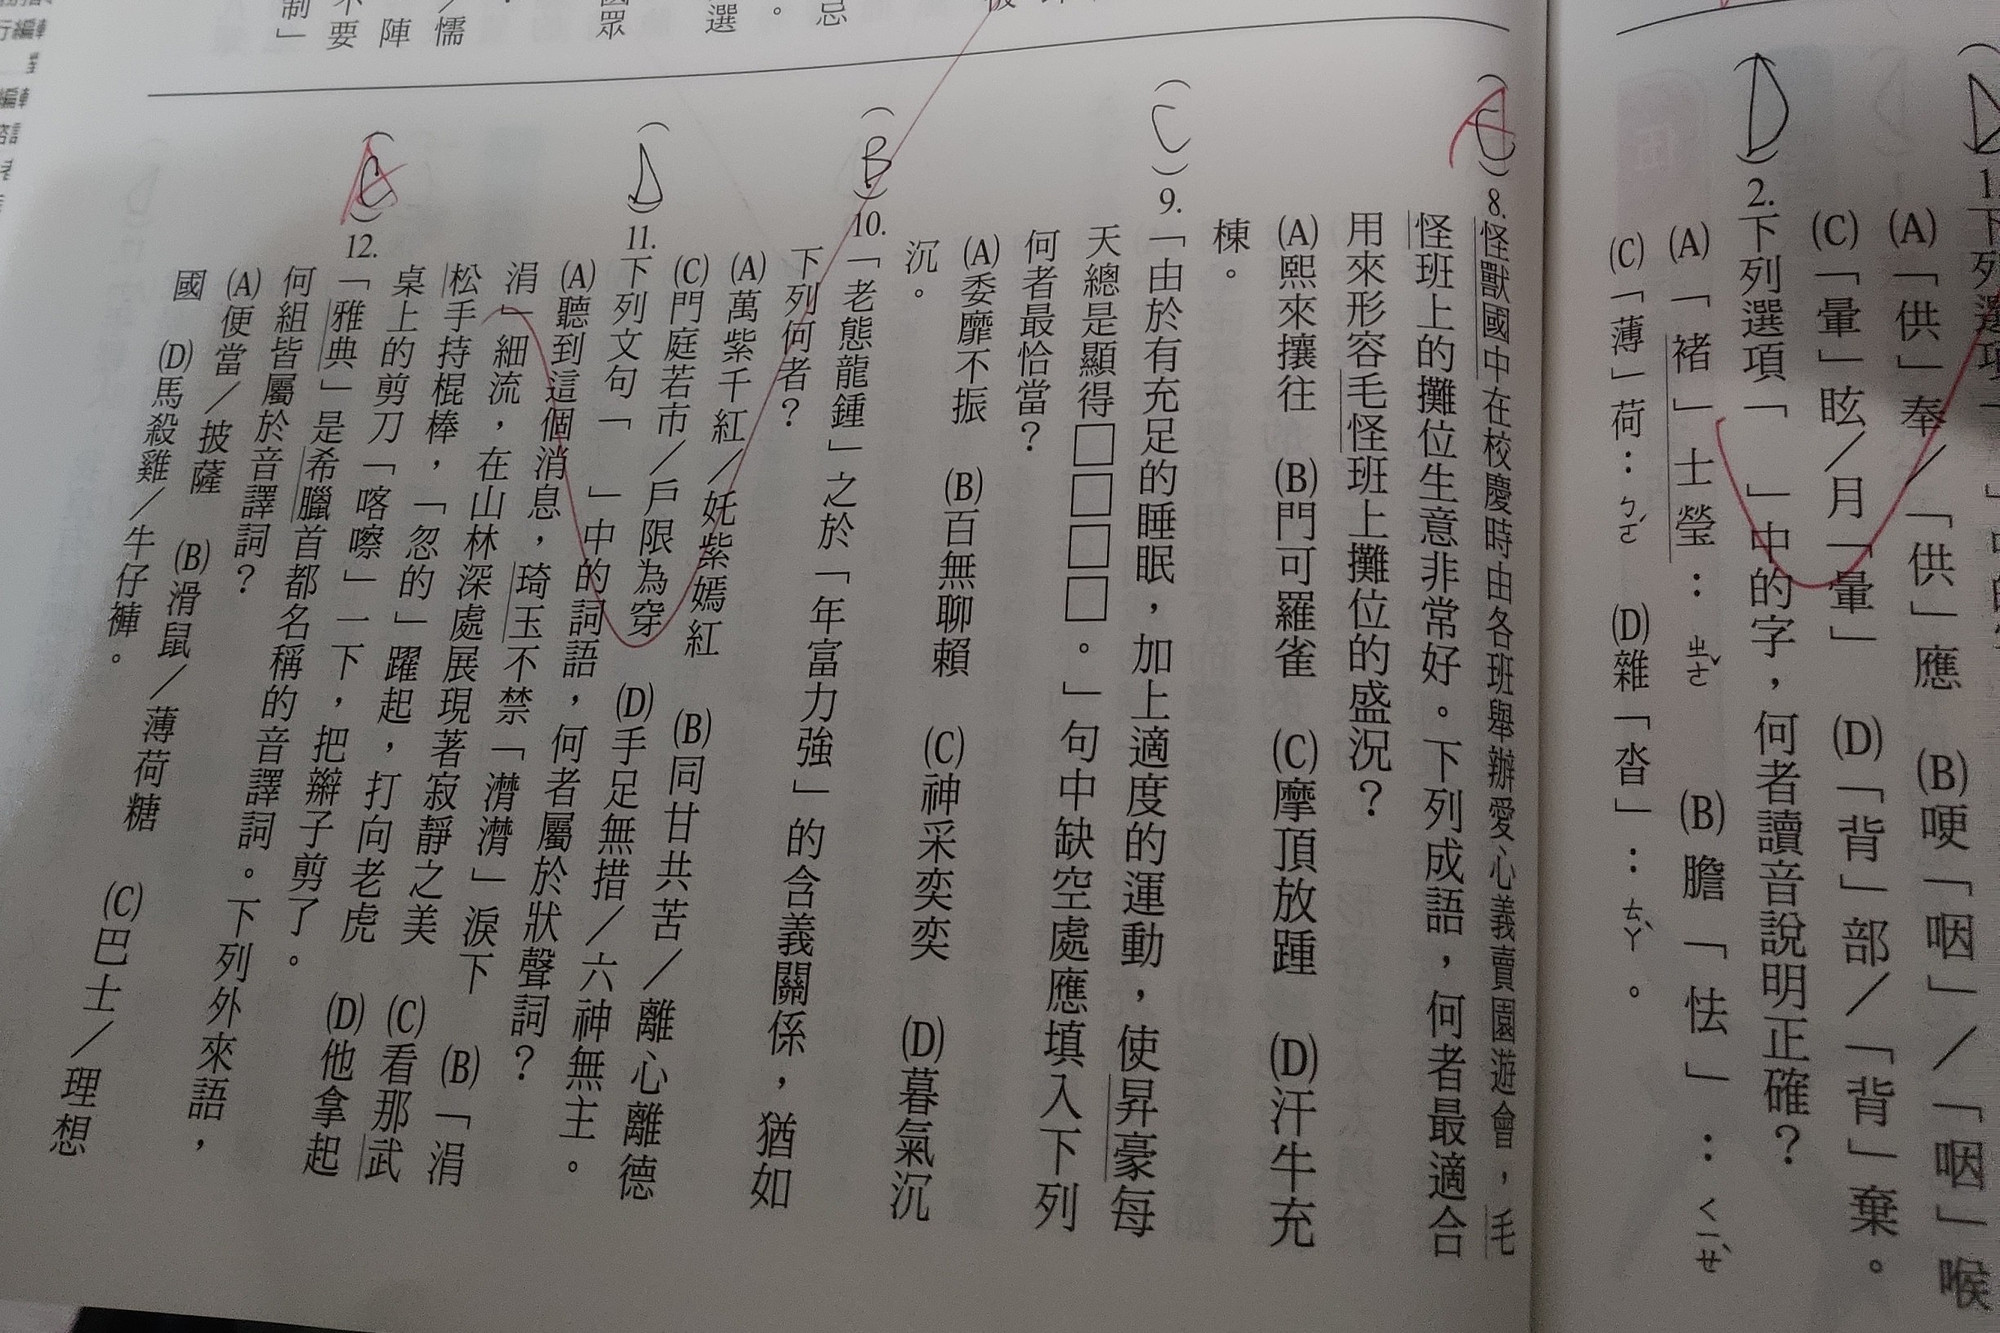 (D)
1.下列選項「
(A)「供」奉／「供」應 (B)哽「咽」／「咽」喉
(C)「暈」眩／月「暈」 (D)「背」部／「背」棄。
(D)2.下列選項「 」中的字，何者讀音說明正確？
(A)「褚」士瑩：ㄓㄜˇ (B)膽「怯」：ㄑㄧㄝˋ
(C)「薄」荷：ㄅㄛˊ (D)雜「沓」：ㄊㄚˋ。
忌
。
選
國眾
／懦
陣
不要
制」
(C)A 8.怪獸國中在校慶時由各班舉辦愛心義賣園遊會，毛
怪班上的攤位生意非常好。下列成語，何者最適合
用來形容毛怪班上攤位的盛況？
(A)熙來攘往 (B)門可羅雀 (C)摩頂放踵 (D)汗牛充
棟。
(C)9.「由於有充足的睡眠，加上適度的運動，使昇豪每
天總是顯得□□□□。」句中缺空處應填入下列
何者最恰當？
(A)委靡不振 (B)百無聊賴 (C)神采奕奕 (D)暮氣沉
沉。
(B)10.「老態龍鍾」之於「年富力強」的含義關係，猶如
下列何者？
(A)萬紫千紅／奼紫嫣紅 (B)同甘共苦／離心離德
(C)門庭若市／戶限為穿 (D)手足無措／六神無主。
(D)11.下列文句「 」中的詞語，何者屬於狀聲詞？
(A)聽到這個消息，琦玉不禁「潸潸」淚下 (B)「涓
涓」細流，在山林深處展現著寂靜之美 (C)看那武
松手持棍棒，「忽的」躍起，打向老虎 (D)他拿起
桌上的剪刀「喀嚓」一下，把辮子剪了。
(C)A 12.「雅典」是希臘首都名稱的音譯詞。下列外來語，
何組皆屬於音譯詞？
(A)便當／披薩 (B)滑鼠／薄荷糖 (C)巴士／理想
國 (D)馬殺雞／牛仔褲。